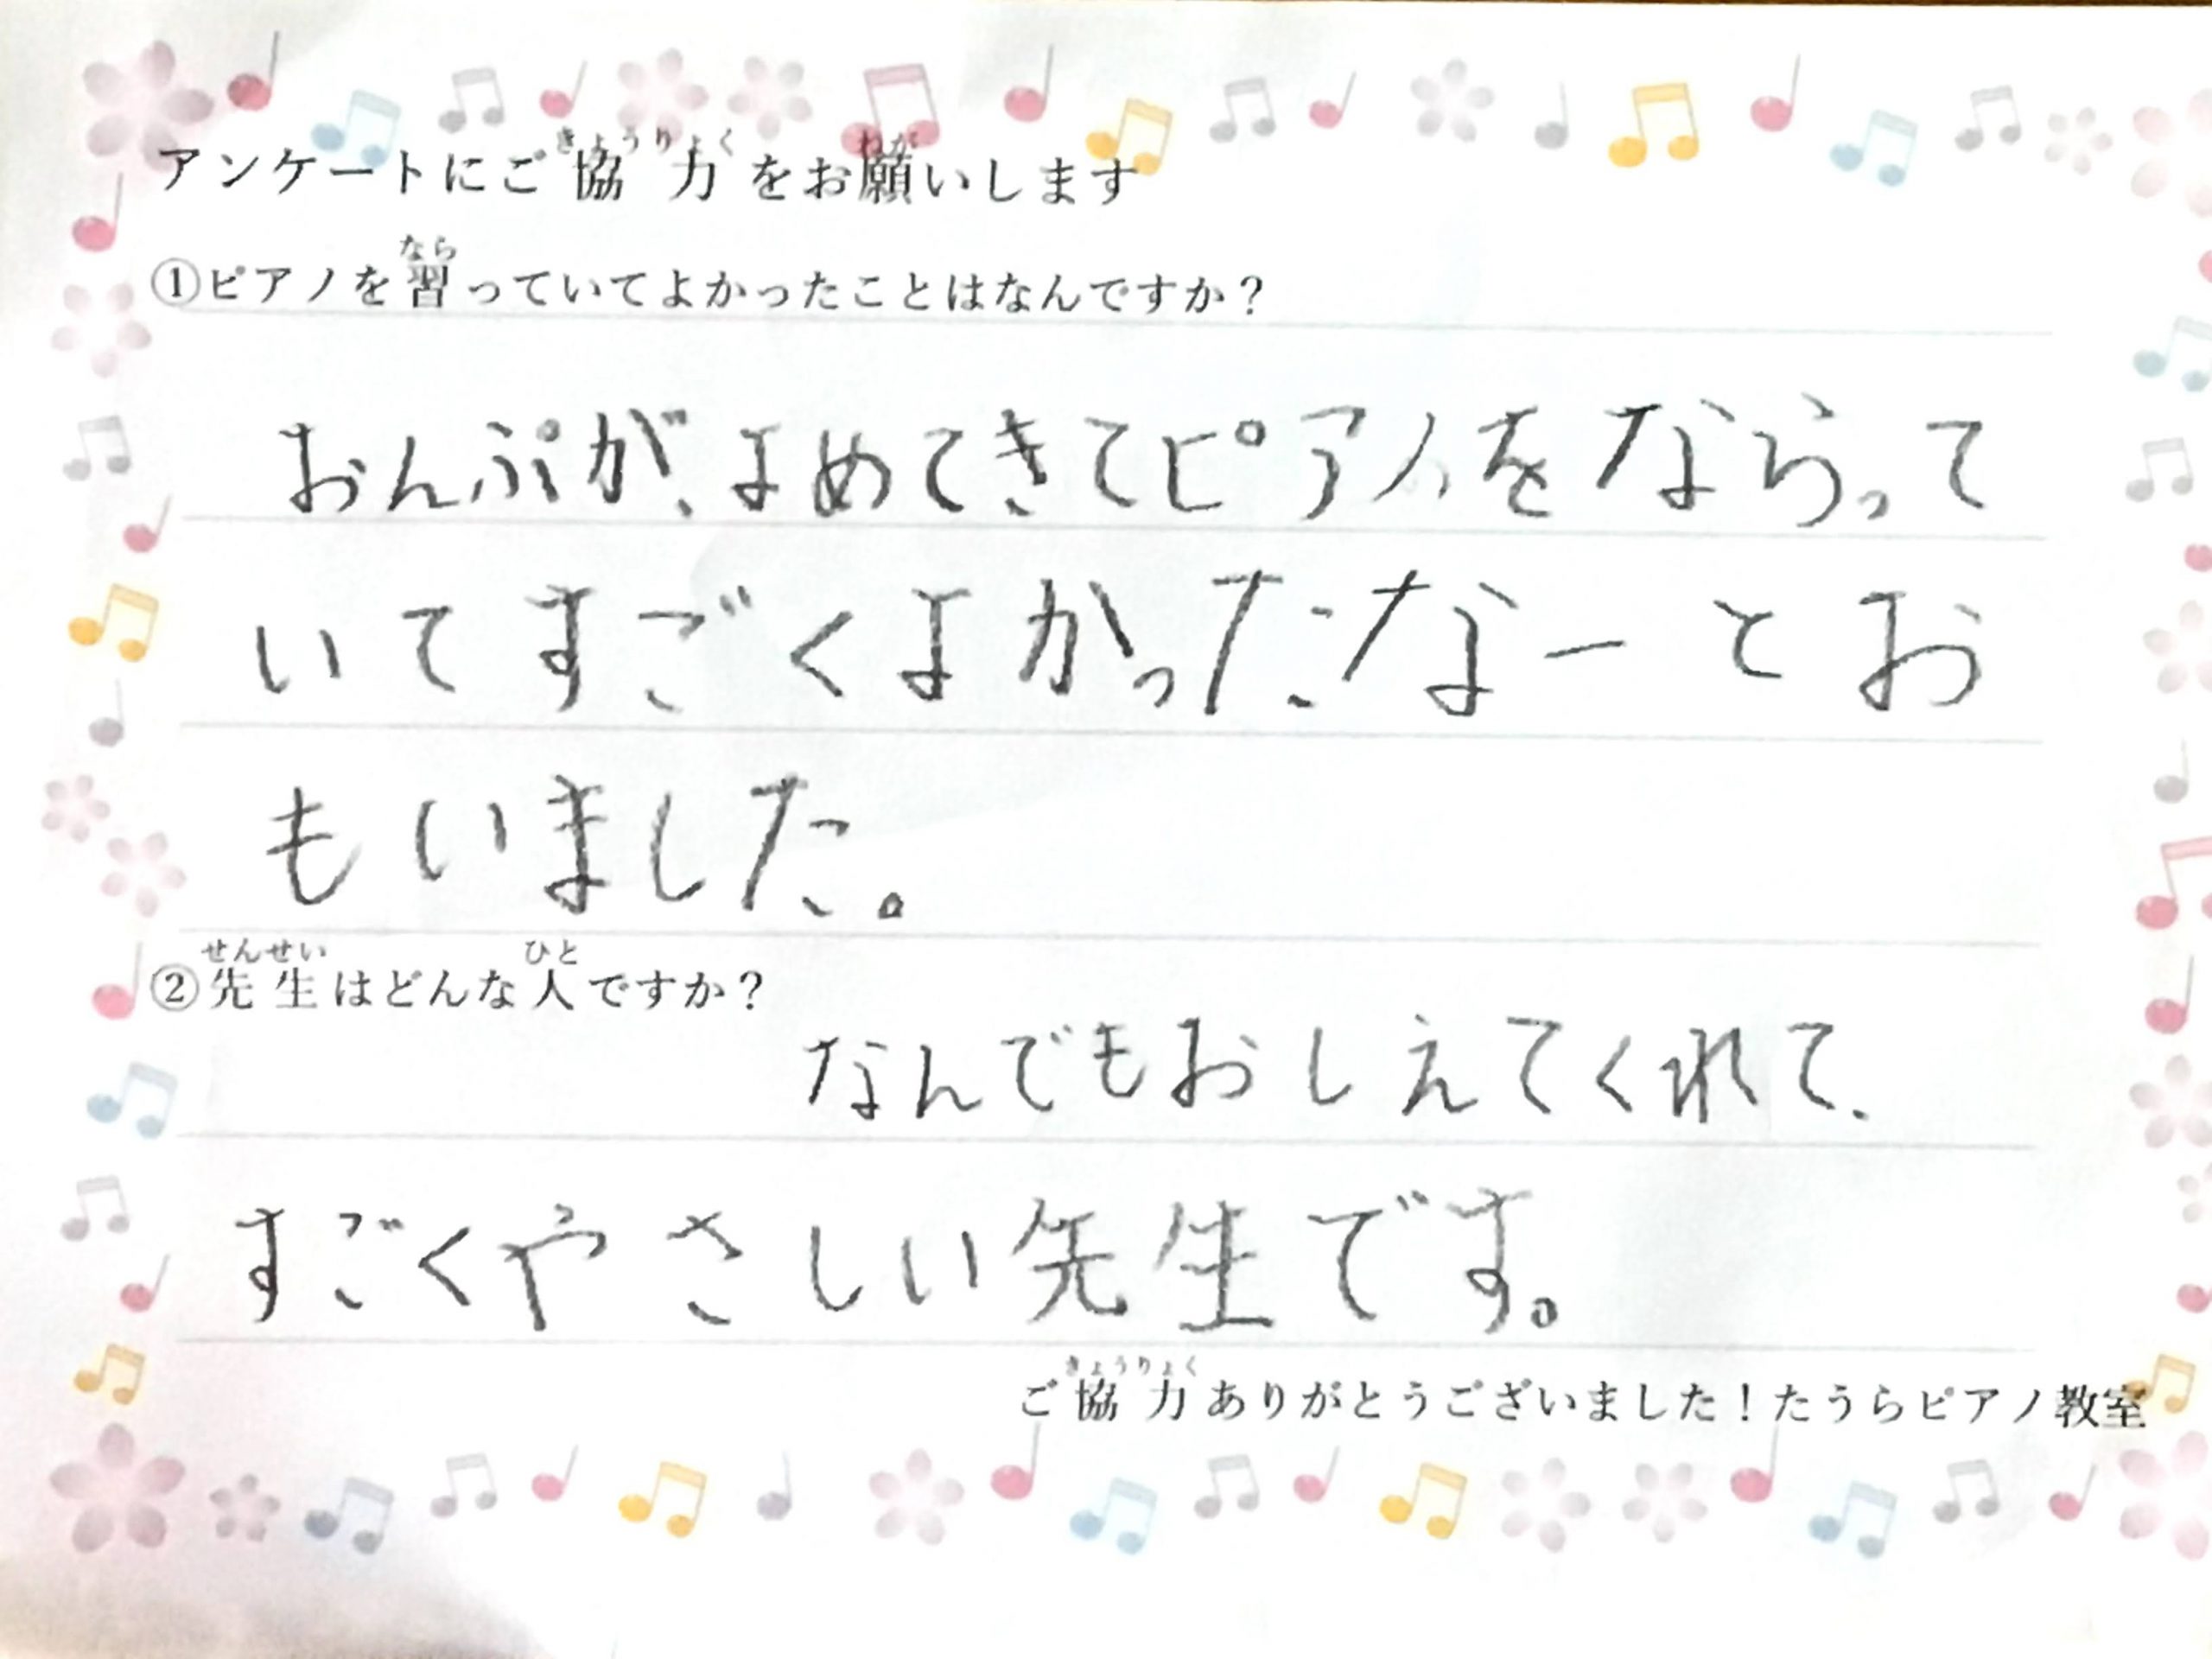 アンケートにご協力をお願いします
①ピアノを習っていてよかったことはなんですか？
おんぷが、よめてきてピアノをならって
いてすごくよかったなーとお
もいました。
②先生はどんな人ですか？
なんでもおしえてくれて、
すごくやさしい先生です。
ご協力ありがとうございました！たうらピアノ教室